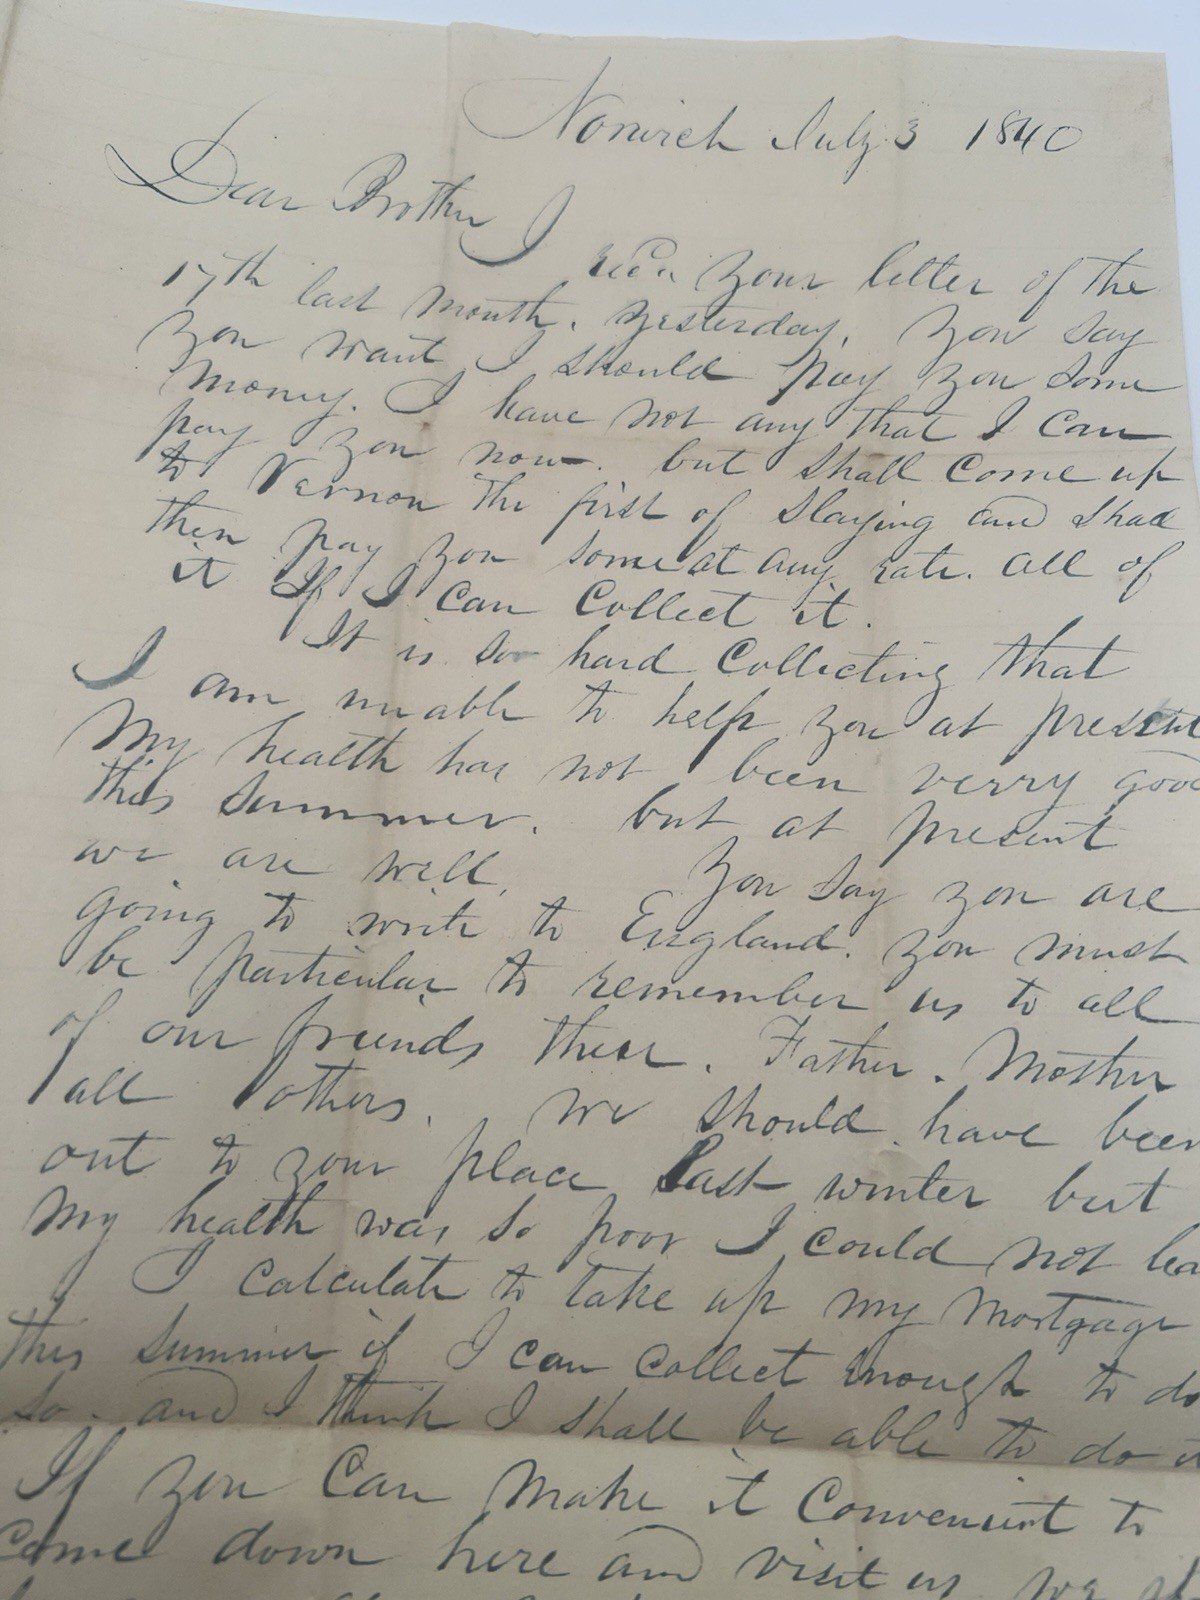 Norwich July 3 1840
Dear Brother I
recd your letter of the
17th last month. yesterday. you say
you want I should pay you some
money. I have not any that I can
pay you now. but shall come up
to Vernon the first of slaying and shall
then pay you some at any rate. all of
it If I can collect it.
It is so hard collecting that
I am unable to help you at present
My health has not been verry good
this summer. but at present
we are well. You say you are
going to write to England. you must
be particular to remember us to all
of our friends there. Father. Mother
all others. We should have been
out to your place last winter but
my health was so poor I could not lea
I calculate to take up my mortgage
this summer if I can collect enough to do
so. and I think I shall be able to do it
If you can make it convenient to
come down here and visit us we